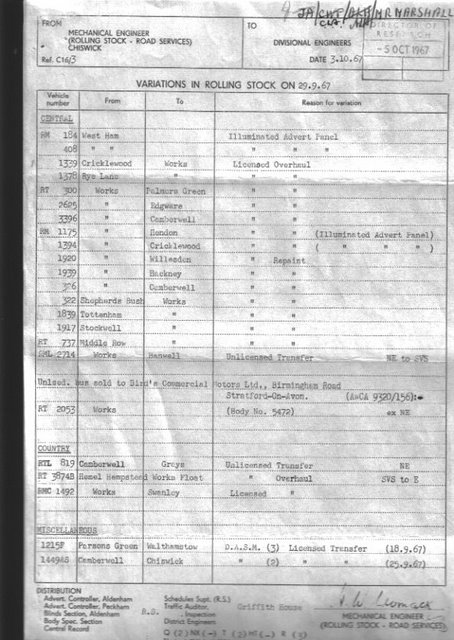 JA/CWT/AKB/MR MARSHALL
FROM
MECHANICAL ENGINEER
(ROLLING STOCK - ROAD SERVICES)
CHISWICK
Ref. C16/3
TO
DIVISIONAL ENGINEERS
DATE 3.10.67
DIRECTOR OF
RESEARCH
-5 OCT 1967
VARIATIONS IN ROLLING STOCK ON 29.9.67
Vehicle number From To Reason for variation
CENTRAL
RM 184 West Ham Illuminated Advert Panel
408 " " " " "
1339 Cricklewood Works Licensed Overhaul
1378 Rye Lane " " "
RT 300 Works Palmers Green " "
2625 " Edgware " "
3396 " Camberwell " "
RM 1175 " Hendon " " (Illuminated Advert Panel)
1394 " Cricklewood " " ( " " " )
1920 " Willesden " Repaint
1939 " Hackney " "
326 " Camberwell " "
322 Shepherds Bush Works " "
1839 Tottenham " " "
1917 Stockwell " " "
RT 737 Middle Row " " "
RML 2714 Works Hanwell Unlicensed Transfer NE to SVS
Unlscd. bus sold to Bird's Commercial Motors Ltd., Birmingham Road
Stratford-On-Avon. (A&CA 9320/156):-
RT 2053 Works (Body No. 5472) ex NE
COUNTRY
RTL 819 Camberwell Grays Unlicensed Transfer NE
RT 3874B Hemel Hempstead Works Float " Overhaul SVS to E
RMC 1492 Works Swanley Licensed "
MISCELLANEOUS
1215F Parsons Green Walthamstow D.A.S.M. (3) Licensed Transfer (18.9.67)
1449AS Camberwell Chiswick " (2) " " (25.9.67)
DISTRIBUTION
Advert. Controller, Aldenham
Advert. Controller, Peckham
Blinds Section, Aldenham
Body Spec. Section
Central Record
R.S.
Schedules Supt. (R.S.)
Traffic Auditor.
Inspection
District Engineers
Griffith House
MECHANICAL ENGINEER
(ROLLING STOCK - ROAD SERVICES)